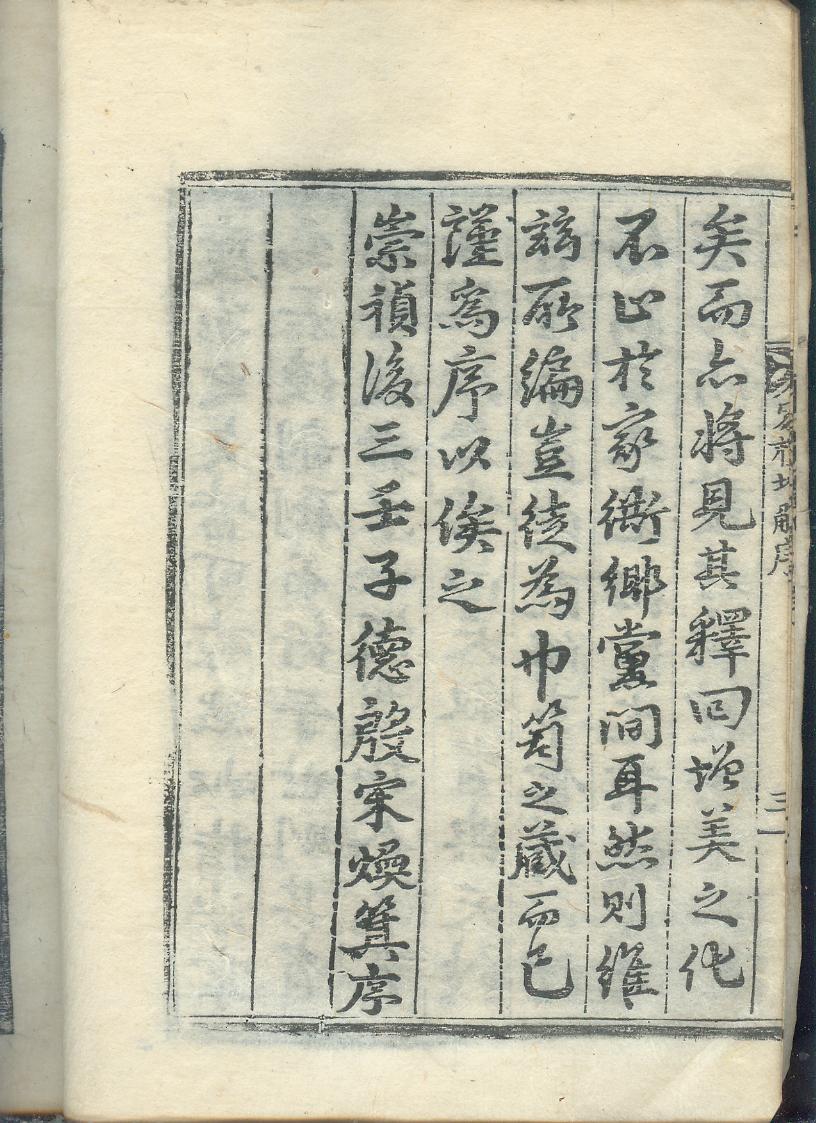 矣而亦將見其釋回增美之化
不止於家衖鄉黨間耳然則維
玆所編豈徒爲巾笥之藏而已
謹寫序以俟之
崇禎後三壬子德殷宋煥箕序
序
三